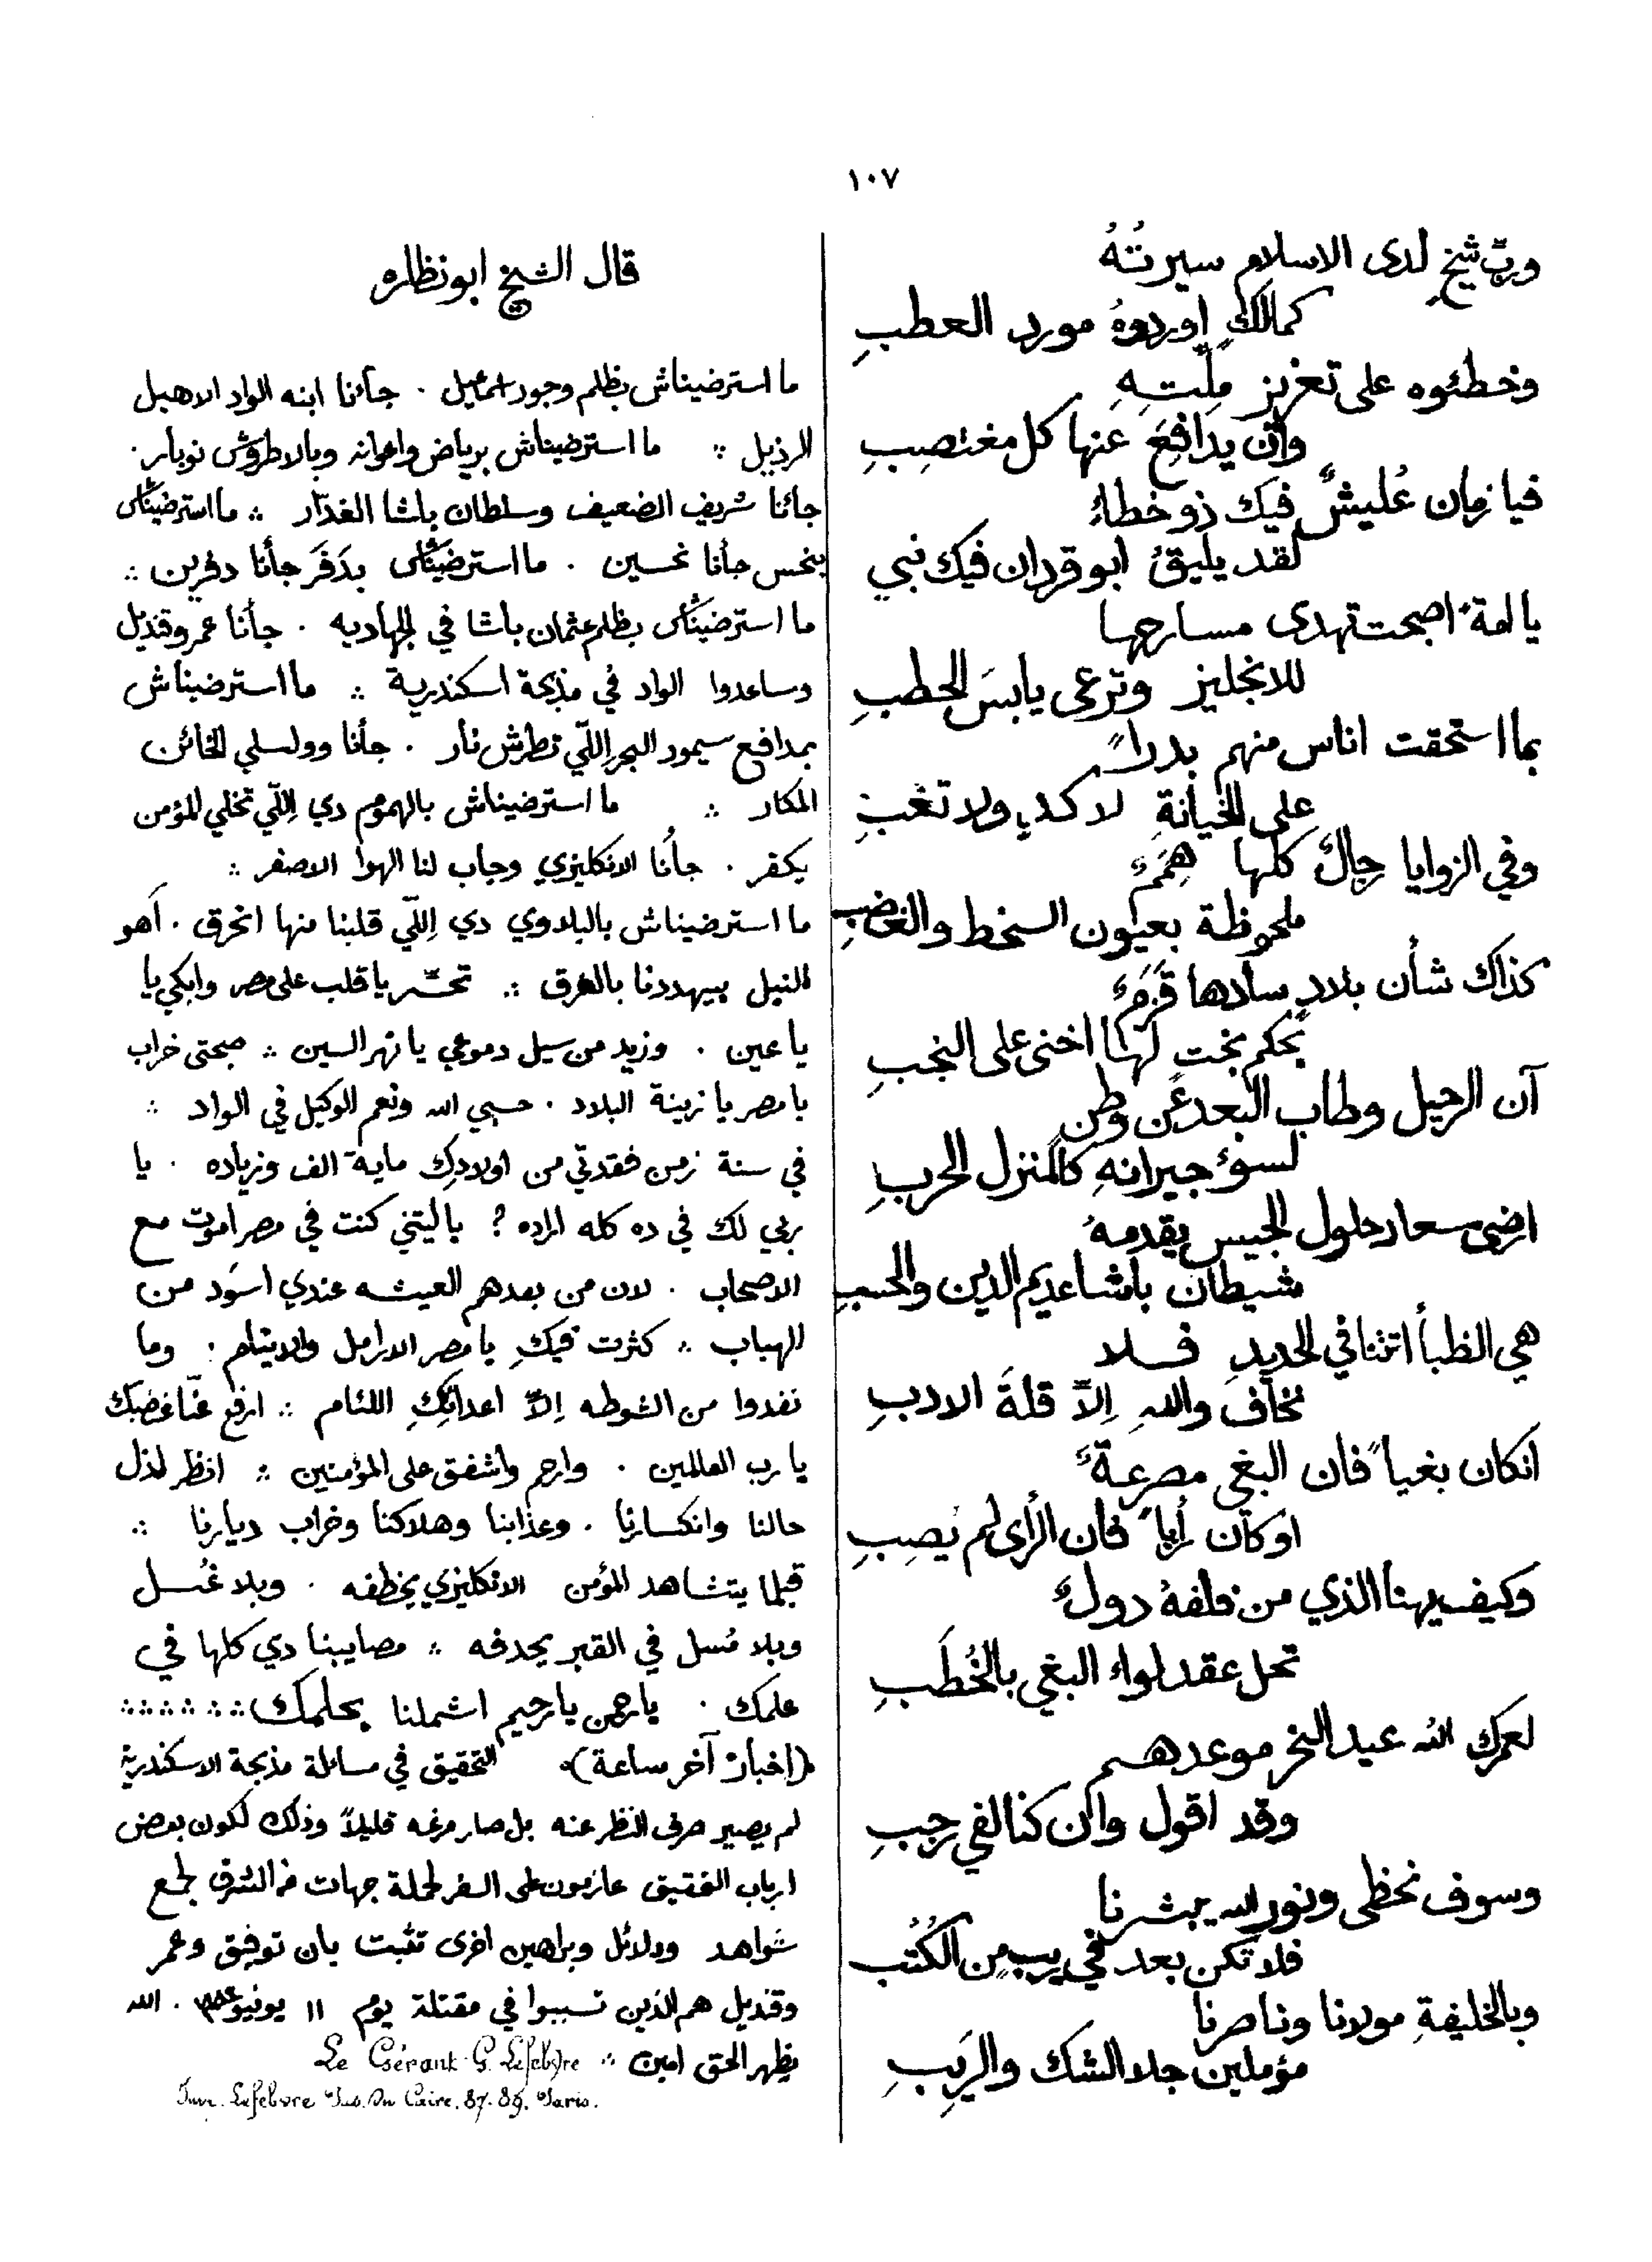 ١٠٧
وربّ شيخٍ لدى الاسلام سيرتُهُ
كمالكٍ اوردوهُ مورد العطبِ
وخطئوه على تعزيز مِلّتِهِ
وان يدافِعَ عنها كل مغتصِبِ
فيا زمان عُليشٌ فيك ذو خطاءٍ
لقد يليقُ ابو قردان فيك نبي
يا امة اصبحت تهدى مسارحها
للانجليز وترعى يابسَ الحطبِ
بما استحقت اناس منهم بدراً
على الخيانةِ لا كدٍ ولا تعَبِ
وفي الزوايا رجالٌ كلها هِمَمٌ
ملحوظة بعيون السخط والغضبِ
كذاك شأن بلادٍ سادها قَزَمٌ
بحكم بختٍ لها اخنى على النجبِ
آن الرحيل وطاب البعد عن وطن
لسوء جيرانهِ كالمنزل الخربِ
ارضى سعار حلول الجيس يقدمهُ
شيطان باشا عديم الدين والحسبِ
هي الظبأ اتثنا في الحديدِ فلا
نخاف واللهِ إلاّ قلةَ الادبِ
انكان بغياً فان البغي مصرعةٌ
او كان رأياً فان الرأى لم يُصِبِ
وكيف يهنا الذي من خلفهُ دولٌ
تحل عقد لواء البغي بالخُطَبِ
لعمرك الله عيد النحر موعدهم
وقد اقول وان كنا لفي رجبِ
وسوف نحظى ونور الله يبشرنا
فلا تكن بعد في ريبٍ من الكُتُبِ
وبالخليفةِ مولانا وناصرنا
مؤملين جلا الشك والرِيَبِ
قال الشيخ ابو نظاره
ما استرضيناش بظلم وجور اسمعيل . جأنا ابنه الواد الاهبل
الرذيل ∴ ما استرضيناش برياض واعوانه وبالاطروش نوبار .
جائنا شريف الضعيف وسلطان باشا الغدّار ∴ ما استرضيناش
بنحس جأنا نحسين . ما استرضيناش بدَفَر جأنا دفرين ∴
ما استرضيناش بظلم عثمان باشا في الجهاديه . جأنا عمر وقنديل
وساعدوا الواد في مذبحة اسكندرية ∴ ما استرضيناش
بمدافع سيمور البحر اللّي تطرش نار . جأنا وولسلي الخائن
المكار ∴ ما استرضيناش بالهموم دي اللّي تخلي المؤمن
يكفر . جأنا الانكليزي وجاب لنا الهوا الاصفر ∴
ما استرضيناش بالبلاوي دي إللّي قلبنا منها انحرق . اهو
النيل بيهددنا بالغرق ∴ تحسّر يا قلب على مصر وابكي يا
يا عين . وزيد من سيل دموعي يا نهر السين ∴ صبحتى خراب
يا مصر يا زينة البلاد . حسبي الله ونعم الوكيل في الواد ∴
في سنة زمن فقدتي من اولادِك ماية الف وزياده . يا
ربي لك في ده كله اراده ؟ يا ليتني كنت في مصر اموت مع
الاصحاب . لان من بعدهم العيشه عندي اسوَد من
الهباب ∴ كثرت فيكِ يا مصر الارامل والايتام . وما
نفدوا من الشوطه إلاّ اعدائِكِ اللئام ∴ ارفع عنّا غضبك
يا رب العالمين . وارحم واشفق على المؤمنين ∴ انظر لذل
حالنا وانكسارنا . وعذابنا وهلاكنا وخراب ديارنا ∴
قبلما يتشاهد المؤمن الانكليزي يخطفه . وبلا غُسل
وبلا مُسل في القبر يحدفه ∴ مصايبنا دي كلها في
علمك . يا رحمن يا رحيم اشملنا بحلمك ∴ ∴ ∴ ∴ ∴ ∴
(اخبار آخر ساعة) التحقيق في مسائلة مذبحة الاسكندرية
لم يصير صرف النظر عنه بل صار مرغه قليلاً وذلك لكون بعض
ارباب التحقيق عازمون على السفر لجملة جهات في الشرق لجمع
شواهد ودلائل وبراهين اخرى تثبت بان توفيق وعمر
وقنديل هم الذين تسببوا في مقتلة يوم ١١ يونيو ١٨٨٢ . الله
يظهر الحق امين ∴ Le Gérant G. Lefebvre
Imp. Lefebvre Pas. Du Caire. 87-89. Paris.